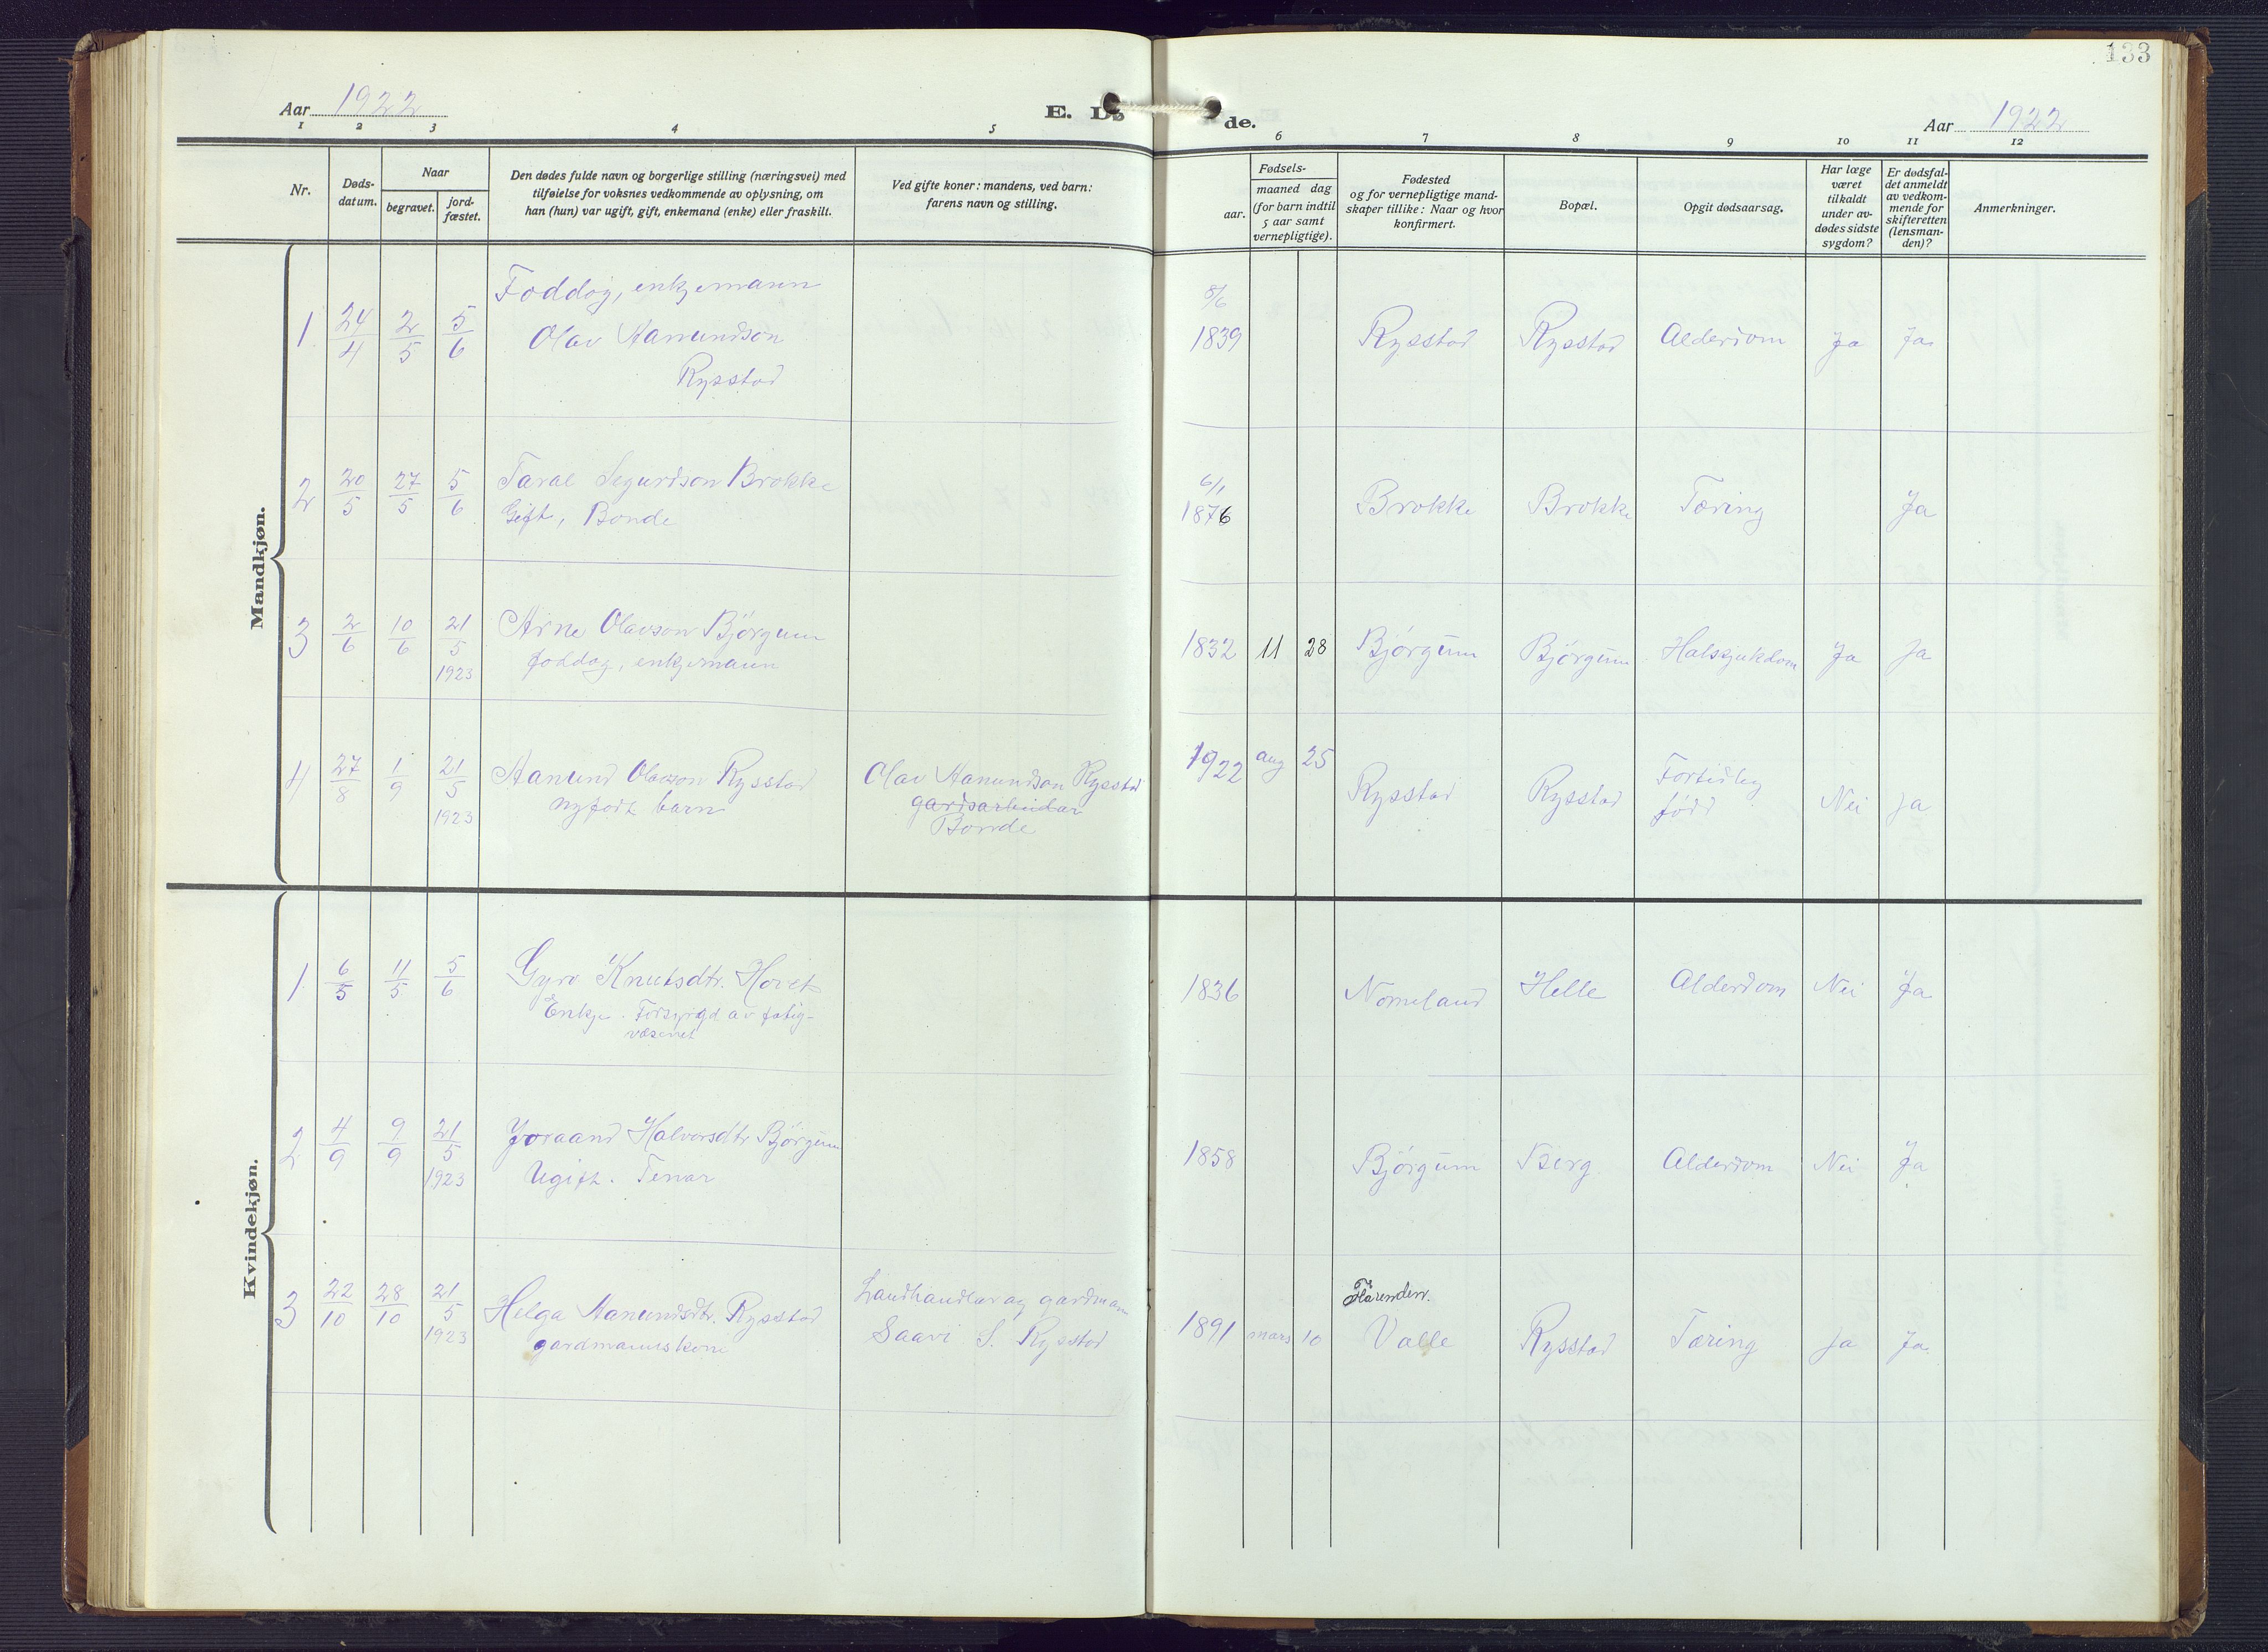 133
Aar 1922
E. Dø
de.
Aar 1922
1 2 3 4 5 6 7 8 9 10 11 12
Nr.
Døds-
datum.
Naar
begravet.
jord-
fæstet.
Den dødes fulde navn og borgerlige stilling (næringsvei) med
tilføielse for voksnes vedkommende av oplysning, om
han (hun) var ugift, gift, enkemand (enke) eller fraskilt.
Ved gifte koner: mandens, ved barn:
farens navn og stilling.
Fødsels-
aar.
maaned dag
(for barn indtil
5 aar samt
vernepligtige).
Fødested
og for vernepligtige mand-
skaper tillike: Naar og hvor
konfirmert.
Bopæl.
Opgit dødsaarsag.
Har læge
været
tilkaldt
under av-
dødes sidste
sygdom?
Er dødsfal-
det anmeldt
av vedkom-
mende for
skifteretten
(lensman-
den)?
Anmerkninger.
Mandkjøn.
1 24/4 2/5 5/6 Foddog, enkjemann
Olav Aanundson
Rysstad
8/6
1839 Rysstad Rysstad Alderdom Ja Ja
2 20/5 27/5 5/6 Taral Sigurdson Brokke
Gift, Bonde
6/1
1876 Brokke Brokke Tæring Ja
3 2/6 10/6 21/5 1923 Arne Olavson Björgum
foddog, enkjemann
1832 11 28 Björgum Björgum Halssjukdom Ja Ja
4 27/8 1/9 21/5 1923 Aanund Olavson Rysstad
nyfødt barn
Olav Aanundson Rysstad
gardsarbeidar
Bonde
1922 aug 25 Rysstad Rysstad Fortidleg
fødd
Nei Ja
Kvindekjøn.
1 6/5 11/5 5/6 Gyro Knutsdtr. Hovet
Enkje. Forsyrgd av fatig-
væsenet
1836 Nomeland Helle Alderdom Nei Ja
2 4/9 9/9 21/5 1923 Joraand Halvorsdtr Björgum
Ugift. Tenar
1858 Björgum Berg Alderdom Nei Ja
3 22/10 28/10 21/5 1923 Helga Aanundsdtr. Rysstad
gardmannskone
Landhandlar og gardmann
Saavi S. Rysstad
1891 mars 10
Valle Rysstad Tæring Ja Ja